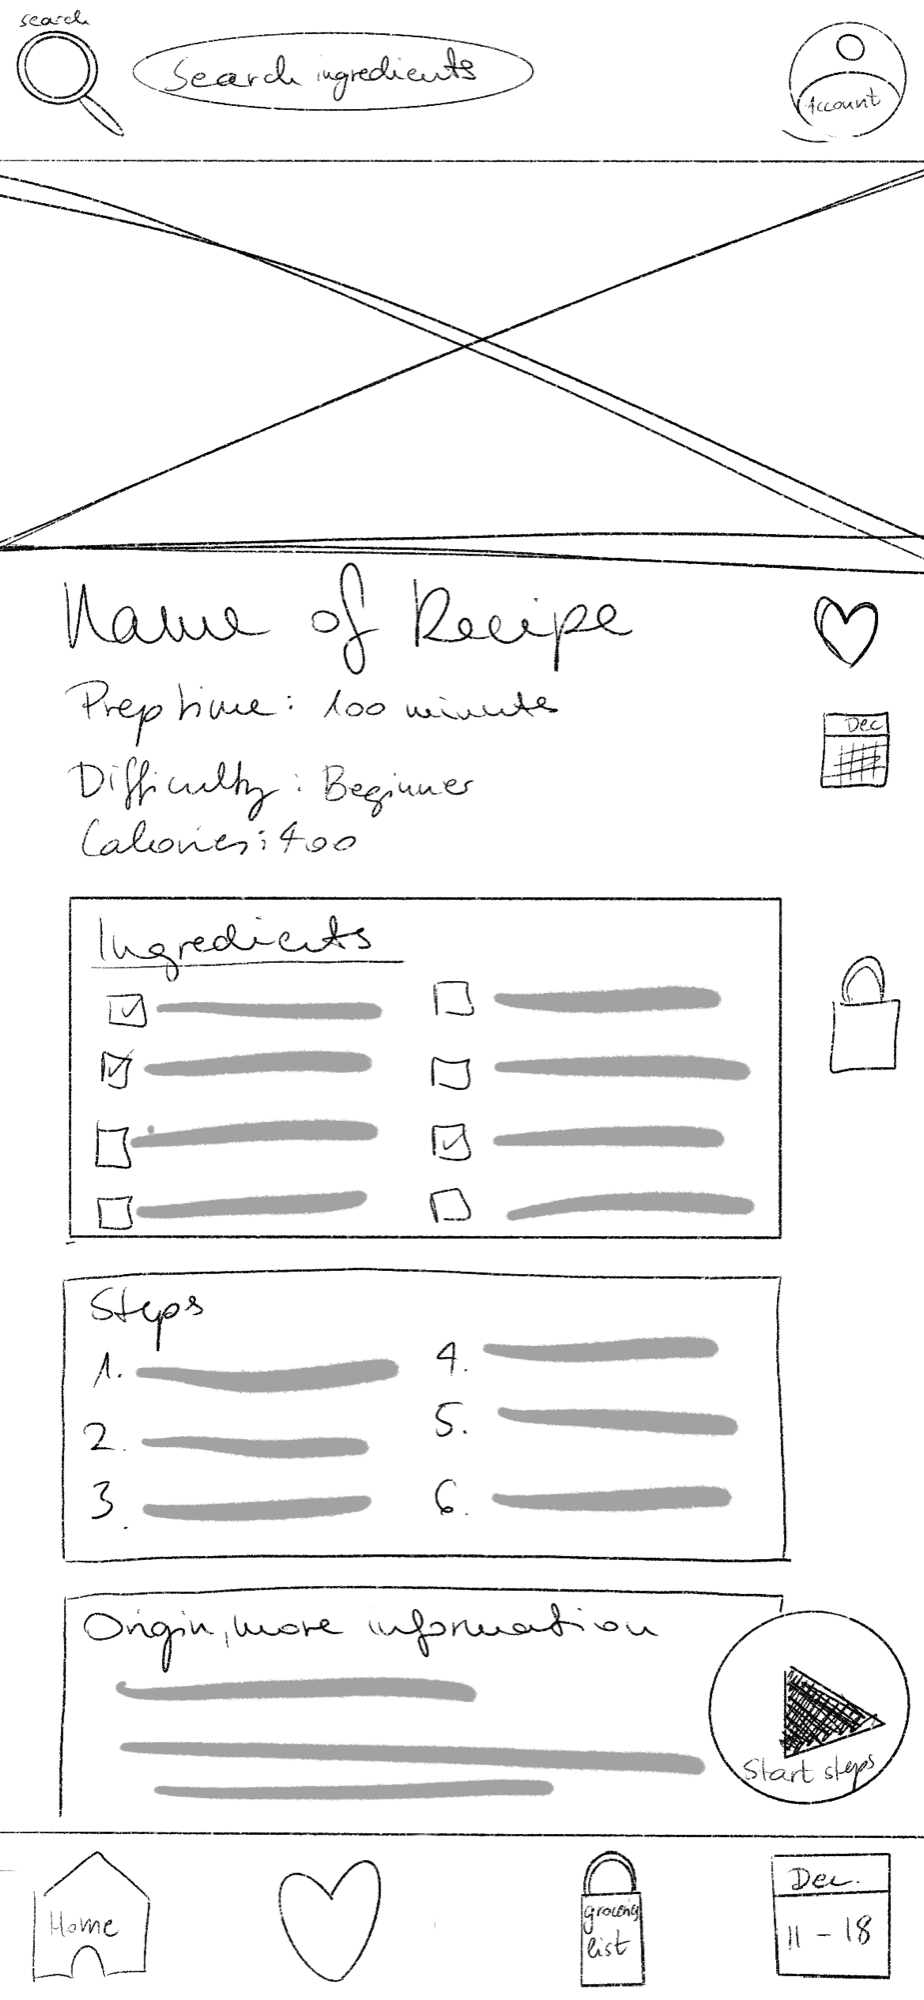 search
Search ingredients
Account
Name of Recipe
Prep time: 100 minutes
Dec
Difficulty: Beginner
Calories: 400
Ingredients
Steps
1.
2.
3.
4.
5.
6.
Origin, more information
Start steps
Home
grocery
list
Dec.
11 - 18